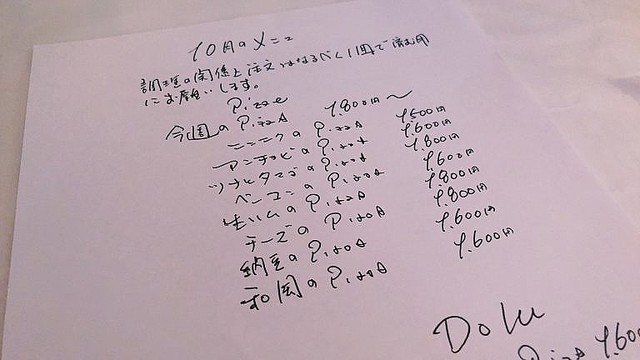 10月のメニュー
調理の関係上注文はなるべく1回で済む用
にお願いします。
Pizze
今週のPizzA 1.800円～
ニンニクのPizzA 1.500円
アンチョビのPizzA 1.600円
ツナとタマゴのPizzA 1.800円
ベーコンのPizzA 1.600円
生ハムのPizzA 1.800円
チーズのPizzA 1.800円
納豆のPizzA 1.600円
和風のPizzA 1.600円
PizzA 1.600